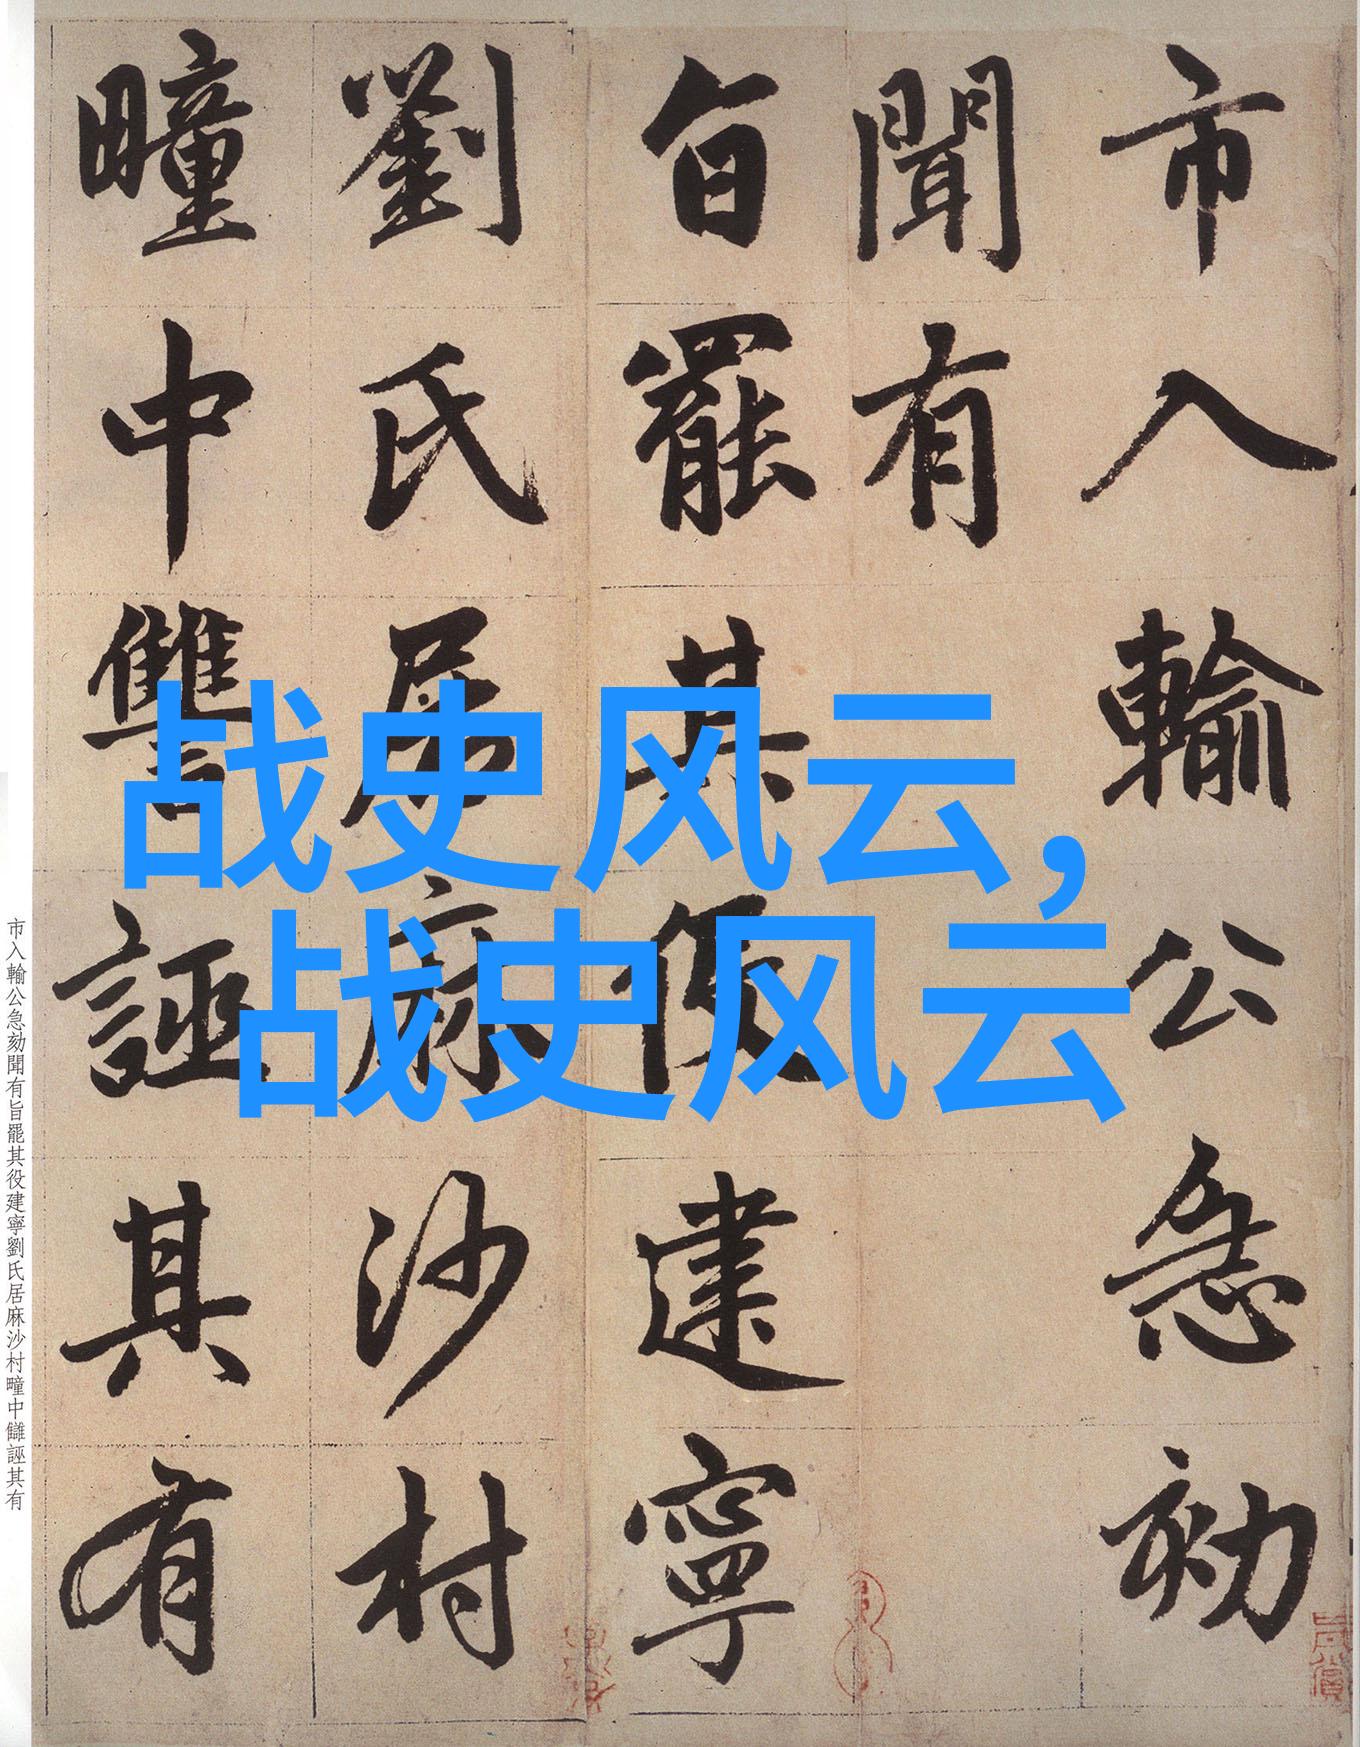 市入輸公急劾
聞有
旨罷其役建寧
劉氏居麻沙村
疃中讐誣其有
战史风云,
战史风云
市入輸公急劾聞有旨罷其役建寧劉氏居麻沙村疃中讎誣其有